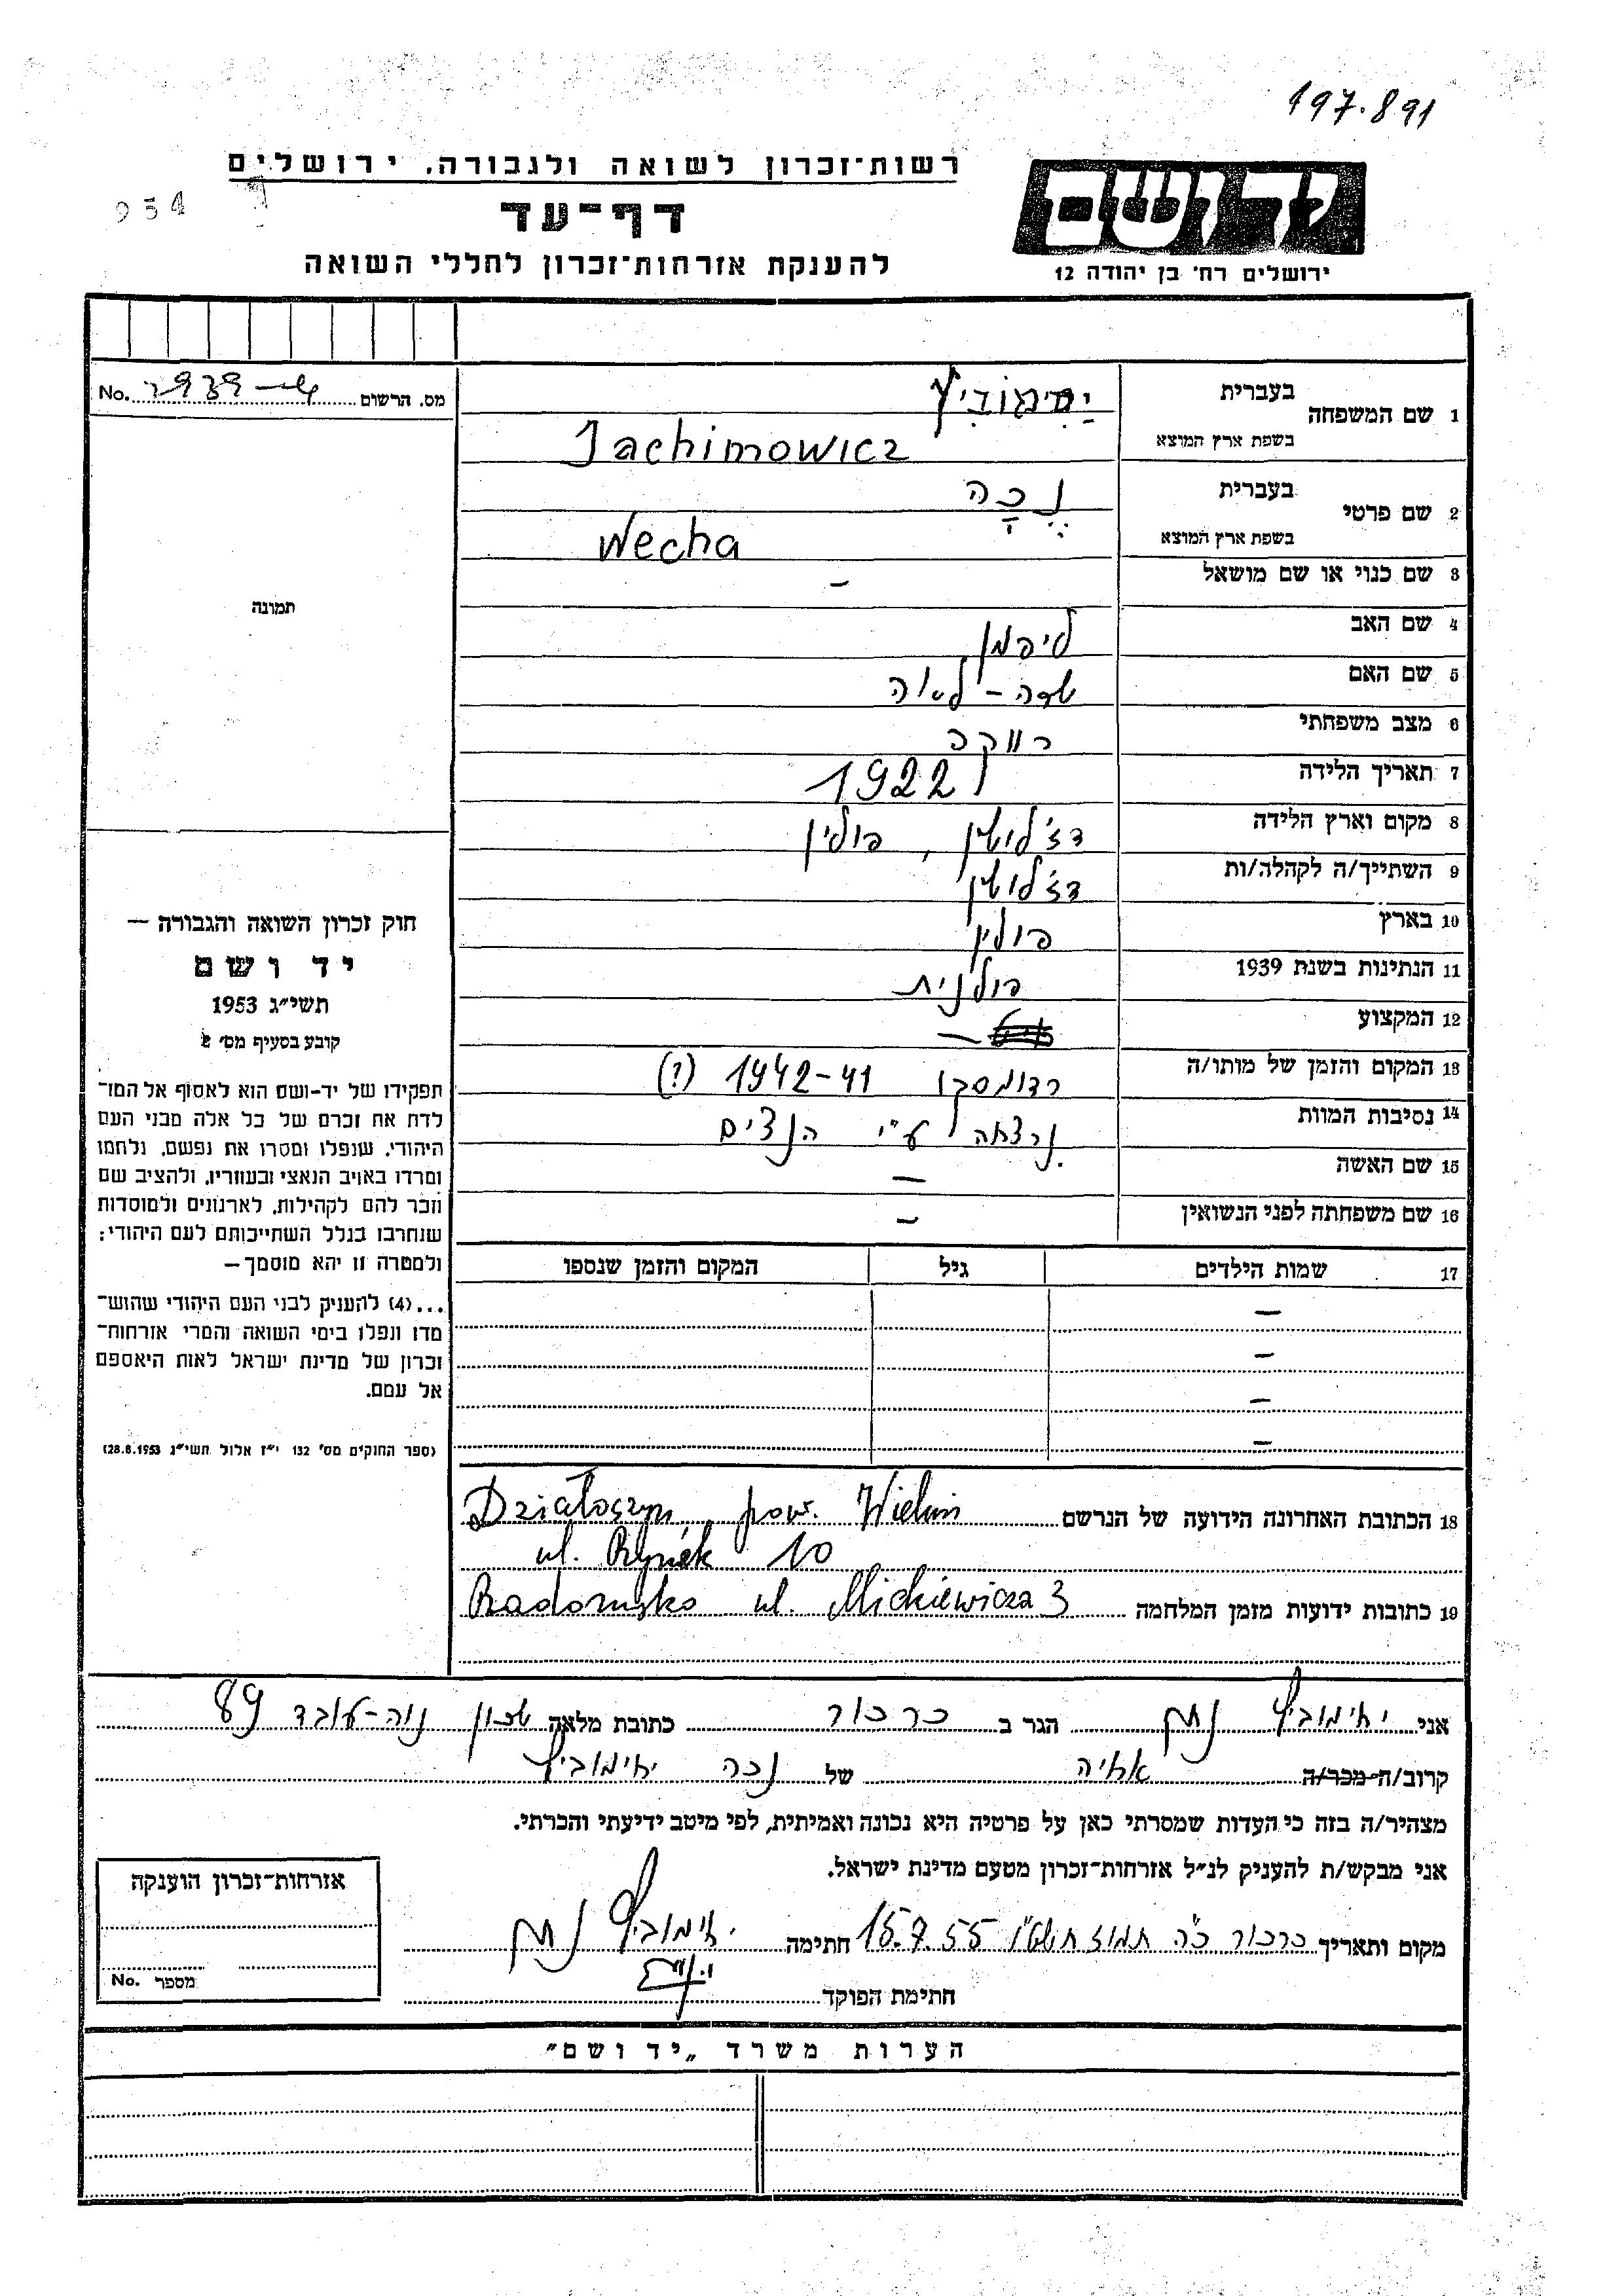 197.891
רשות־זכרון לשואה ולגבורה, ירושלים
954
דף־עד
להענקת אזרחות־זכרון לחללי השואה
יד ושם
ירושלים רח' בן יהודה 12
מס. הרשום No.
1 שם המשפחה בעברית יַחִימוֹבִיץ
בשפת ארץ המוצא Jachimowicz
2 שם פרטי בעברית נֶכָה
בשפת ארץ המוצא Necha
3 שם כנוי או שם מושאל –
4 שם האב ליפמן
5 שם האם שרה-לאה
6 מצב משפחתי רווקה
7 תאריך הלידה 1922
8 מקום וארץ הלידה דז'לושין, פולין
9 השתייך/ה לקהלה/ות דז'לושין
10 בארץ פולין
11 הנתינות בשנת 1939 פולנית
12 המקצוע –
13 המקום והזמן של מותו/ה רדומסקו 1942-41 (?)
14 נסיבות המוות נרצחה ע"י הנצים
15 שם האשה –
16 שם משפחתה לפני הנשואין –
17 שמות הילדים גיל המקום והזמן שנספו
–
–
–
–
תמונה
חוק זכרון השואה והגבורה —
יד ושם
תשי"ג 1953
קובע בסעיף מס' 2
תפקידו של יד-ושם הוא לאסוף אל המו־
לדת את זכרם של כל אלה מבני העם
היהודי, שנפלו ומסרו את נפשם, נלחמו
ומרדו באויב הנאצי ובעוזריו, ולהציב שם
וזכר להם לקהילות, לארגונים ולמוסדות
שנחרבו בגלל השתייכותם לעם היהודי;
ולמטרה זו יהא מוסמך —
...(4) להעניק לבני העם היהודי שהוש־
מדו ונפלו בימי השואה והמרי אזרחות־
זכרון של מדינת ישראל לאות היאספם
אל עמם.
(ספר החוקים מס' 132 י"ז אלול תשי"ג 28.8.1953)
18 הכתובת האחרונה הידועה של הנרשם Działoszyn, pow. Wieluń
ul. Rynek 10
19 כתובות ידועות מזמן המלחמה Radomsko ul. Mickiewicza 3
אני יחימוביץ נתן הגר ב כרכור כתובת מלאה שכון נוה-עובד 89
קרוב/ה מכר/ה אחיה של נכה יחימוביץ
מצהיר/ה בזה כי העדות שמסרתי כאן על פרטיה היא נכונה ואמיתית, לפי מיטב ידיעתי והכרתי.
אני מבקש/ת להעניק לנ"ל אזרחות־זכרון מטעם מדינת ישראל.
מקום ותאריך כרכור כ"ה תמוז תשט"ו 15.7.55 חתימה יחימוביץ נתן
חתימת הפוקד
אזרחות־זכרון הוענקה
מספר No.
הערות משרד „יד ושם"